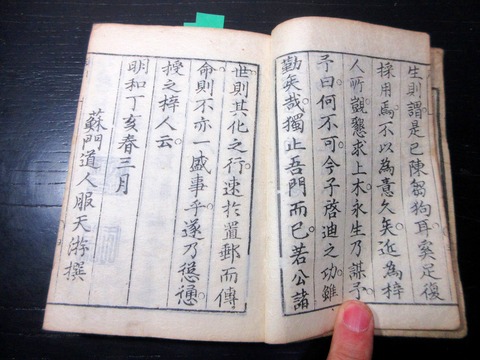 生則謂是已陳芻狗耳奚足復
採用焉不以為意久矣近為梓
人所覬懇求上木永生乃謀予
予曰何不可今子啓迪之功雖
勤矣哉獨止吾門而已若公諸
世則其化之行速於置郵而傳
命則不亦一盛事乎遂乃慫慂
授之梓人云
明和丁亥春三月
蘇門道人服天游撰